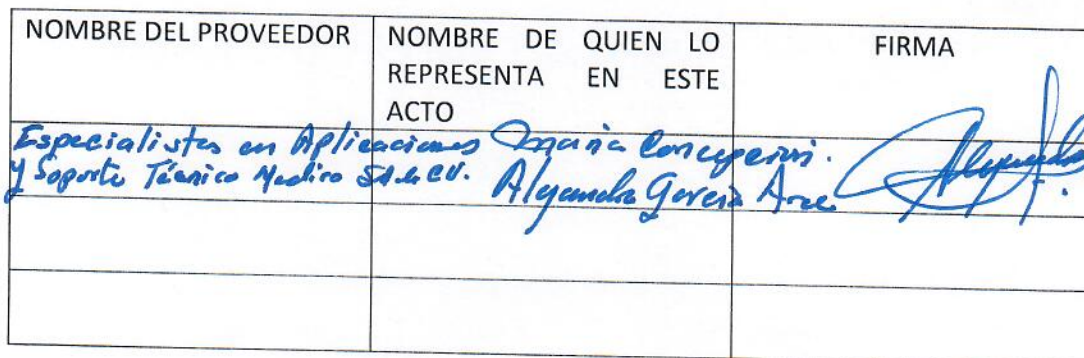 NOMBRE DEL PROVEEDOR
NOMBRE DE QUIEN LO
REPRESENTA EN ESTE
ACTO
FIRMA
Especialistas en Aplicaciones
y Soporte Técnico Medico SA de CV.
Maria Concepcion.
Alejandra Garcia Arce